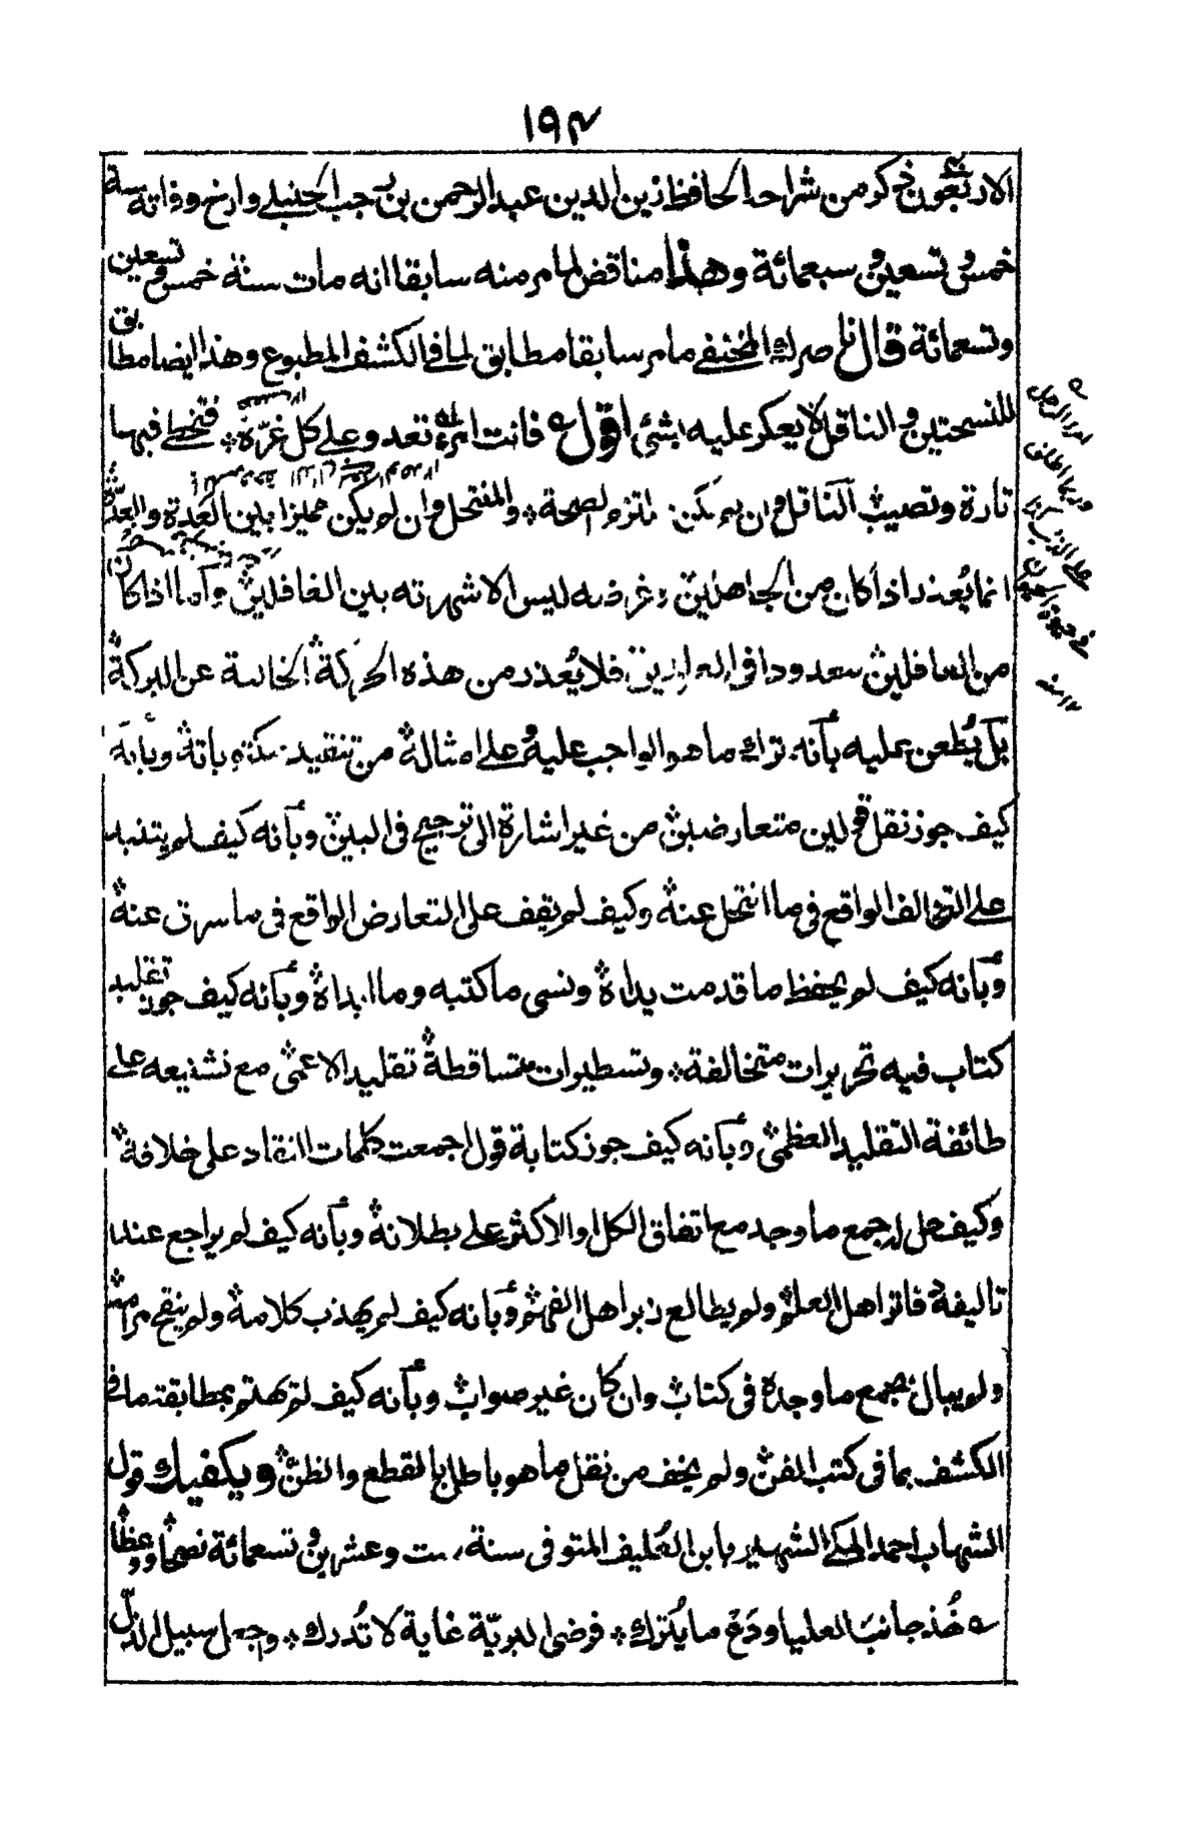 ١٩٤
الاربعون ذكر من شراحه الحافظ زين الدين عبد الرحمن بن رجب الحنبلي وارخ وفاته سنة
خمس وتسعين وسبعمائة وهذا مناقض لما مر منه سابقا انه مات سنة خمس وتسعين
وتسعمائة قال ناصرك المختفي ما مر سابقا مطابق لما في الكشف المطبوع وهذا ايضا مطابق
للنسختين والناقل لا يعكر عليه بشئ اقول فانت امرء تعدو على كل غرّة فتخطي فيها
تارة وتصيب الناقل وان لم يكن ملتزم الصحة والمنتحل وان لم يكن مميزا بين
انما يُعذر اذا كان من الجاهلين وغرضه ليس الا شهرته بين الغافلين واما اذا كان
من العاقلين معدودا في فلا يُعذر من هذه الحركة الخالية عن البركة
بل يُطعن عليه بأنه ترك ما هو الواجب عليه وعلى امثاله من تنقيد مكتوباته وبأنه
كيف جوز نقل قولين متعارضين من غير اشارة الى ترجيح في البين وبأنه كيف لم يتنبه
على التخالف الواقع في ما انتحل عنه وكيف لم يقف على التعارض الواقع في ما سرق عنه
وبأنه كيف لم يحفظ ما قدمت يداه ونسى ما كتبه وما ابداه وبأنه كيف جوز تقليد
كتاب فيه تحريرات متخالفة وتسطيرات متساقطة تقليد الاعمى مع تشنيعه على
طائفة التقليد العظمى وبأنه كيف جوز كتابة قول اجمعت كلمات النقاد على خلافه
وكيف حل له جمع ما وجد مع اتفاق الكل او الاكثر على بطلانه وبأنه كيف لم يراجع عند
تاليفه دفاتر اهل العلم ولم يطالع زبر اهل الفهم وبأنه كيف لم يهذب كلامه ولم ينقح مرامه
ولم يبال بجمع ما وجده في كتاب وان كان غير صواب وبأنه كيف لم يهتم بمطابقة ما في
الكشف بما في كتب الفن ولم يخف من نقل ما هو باطل بالقطع والظن ويكفيك قول
الشهاب احمد المكي الشهير بابن العليف المتوفى سنة ست وعشرين وتسعمائة نصحا ووعظا
خُذ جانبَ العليا ودَع ما يُترك فرضى البريّة غاية لا تُدرك واجعل سبيل الذل